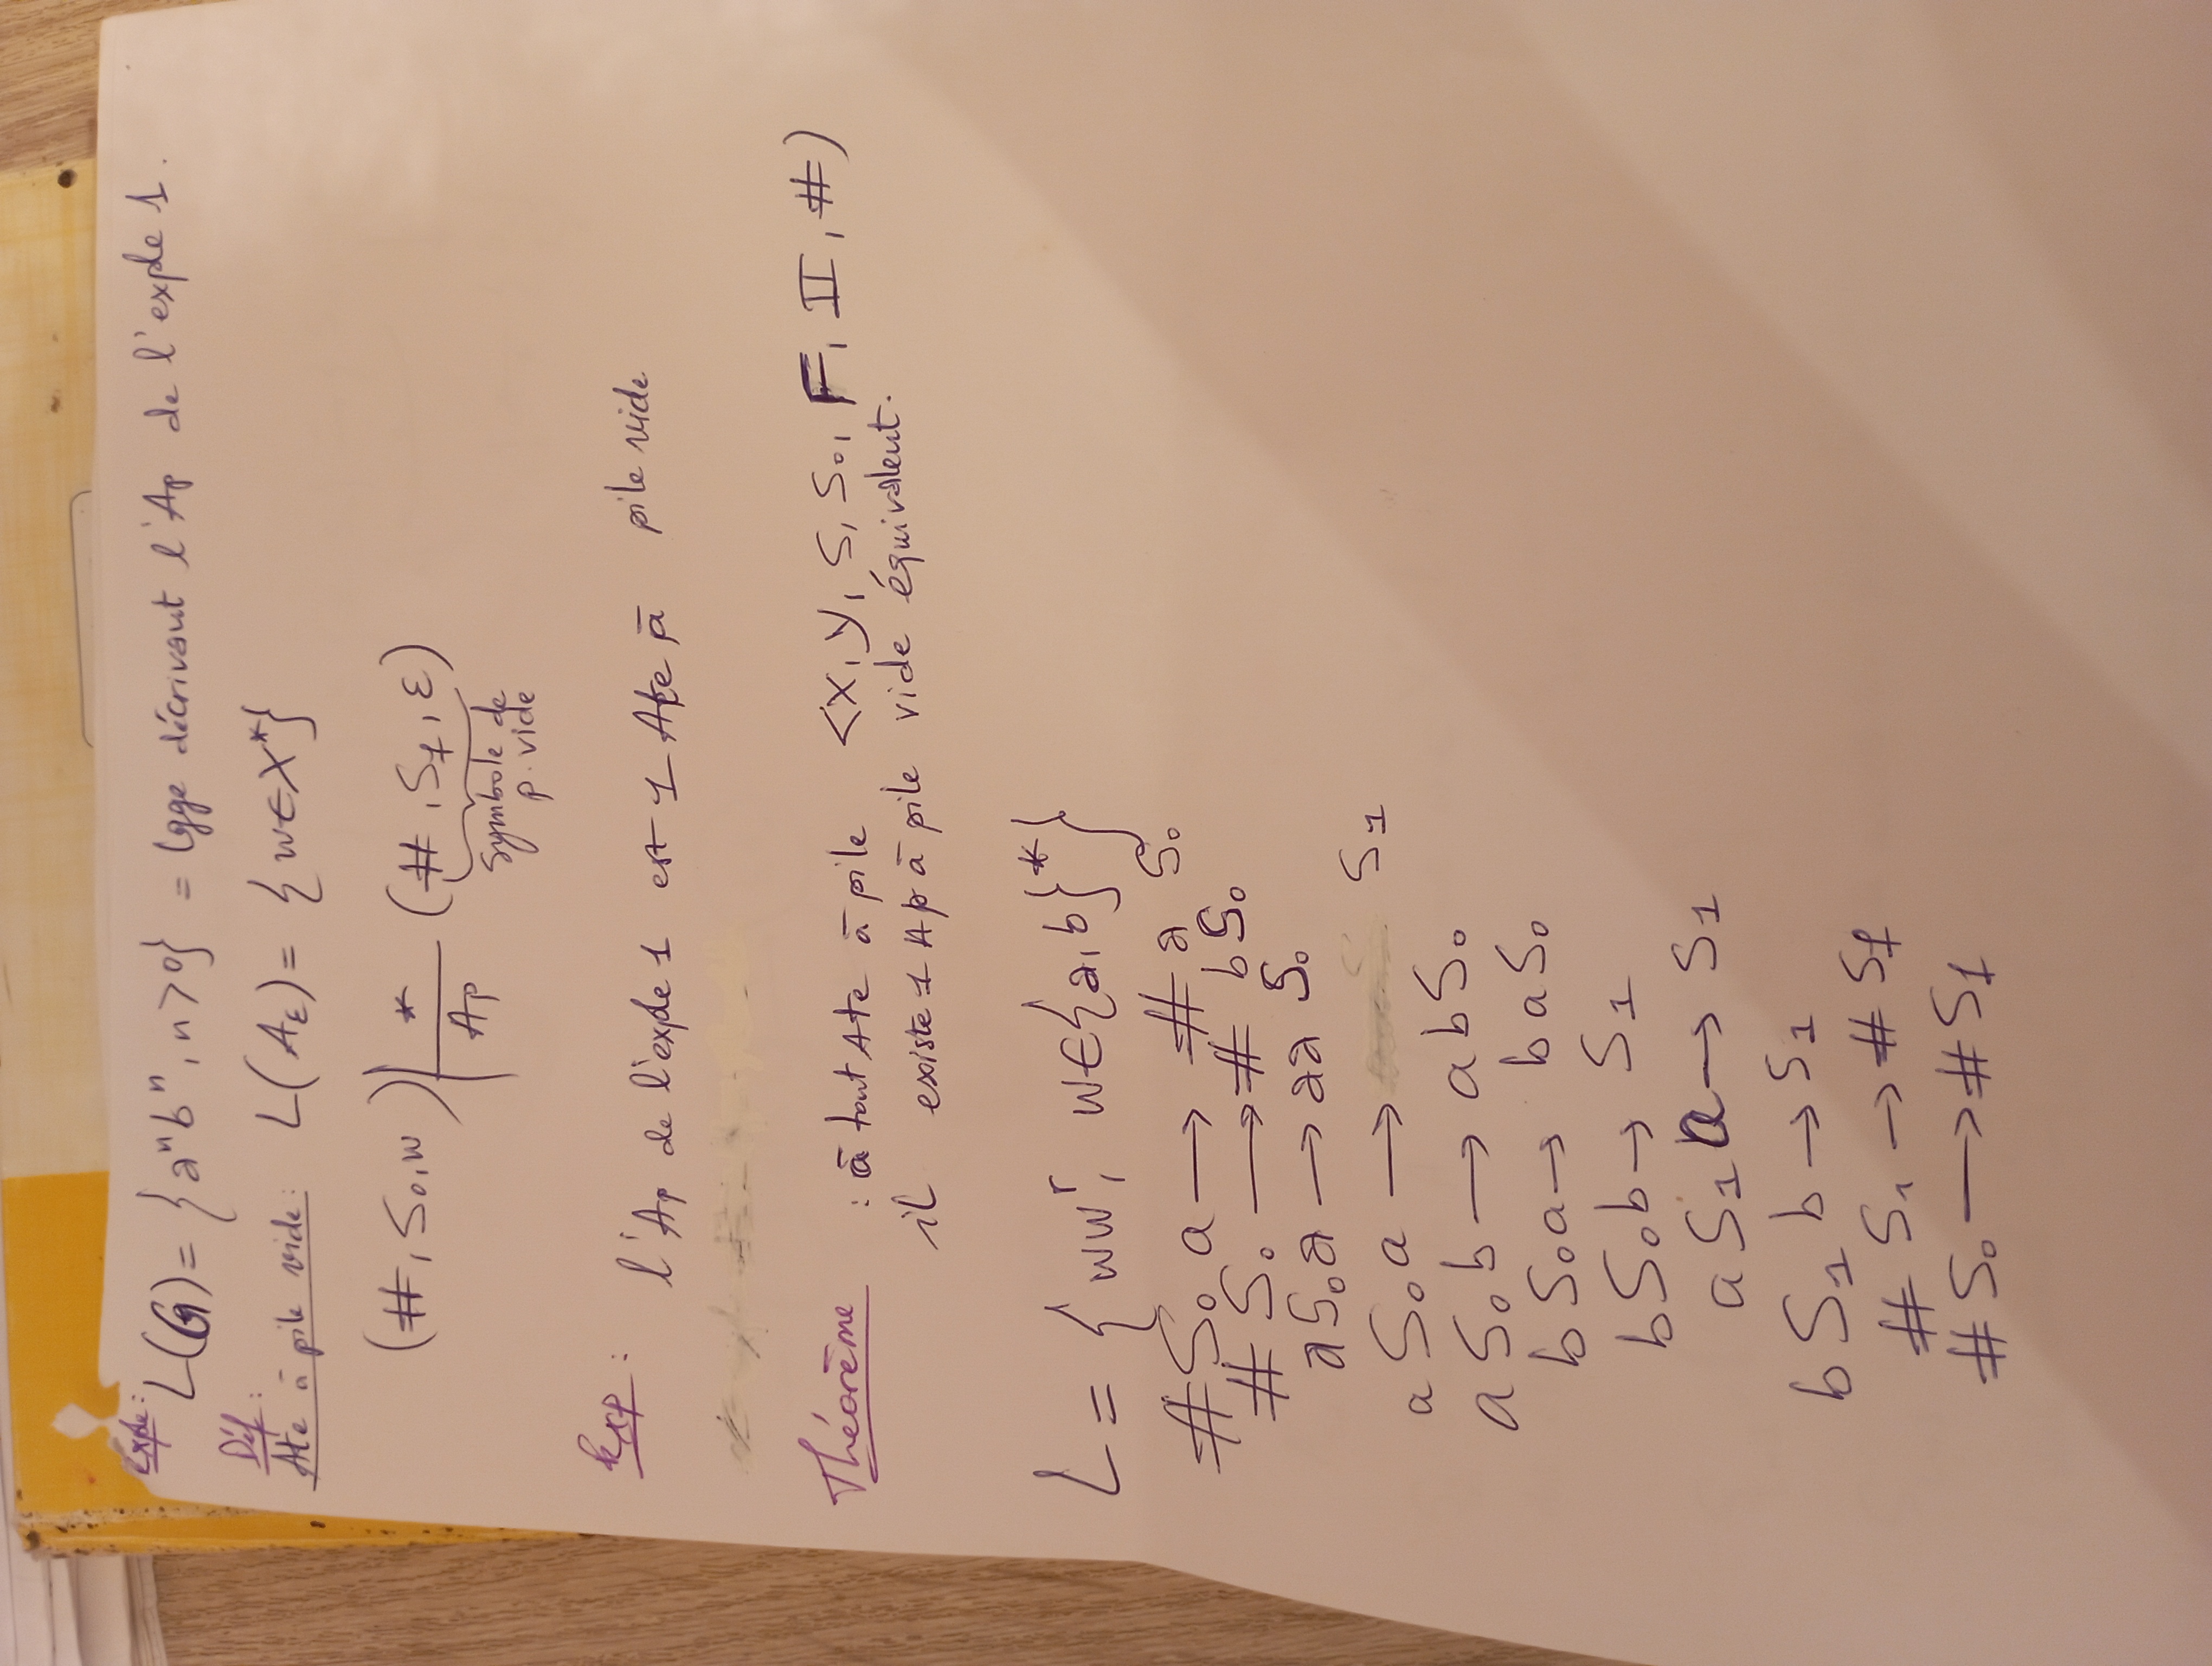 Exple :
L(G) = {aⁿbⁿ, n>0} = lgge décrivant l'Ap de l'exple 1.
Déf :
Ate à pile vide : L(Aε) = {w∈X*}
(#, S₀, w) |* Ap (#, Sf, ε)
symbole de
p. vide
Exp :
l'Ap de l'exple 1 est 1 Ate à pile vide
Théorème : à tout Ate à pile <X, Y, S, S₀, F, II, #)
il existe 1 Ap à pile vide équivalent.
L = {wwʳ, w∈{a,b}*}
#S₀ a → # a S₀
# S₀ → # bS₀
aS₀a → aa S₀
a S₀ a → S₁
a S₀ b → a b S₀
b S₀a → b a S₀
bS₀b → S₁
a S₁ a → S₁
b S₁ b → S₁
# S₁ → # Sf
# S₀ → # Sf